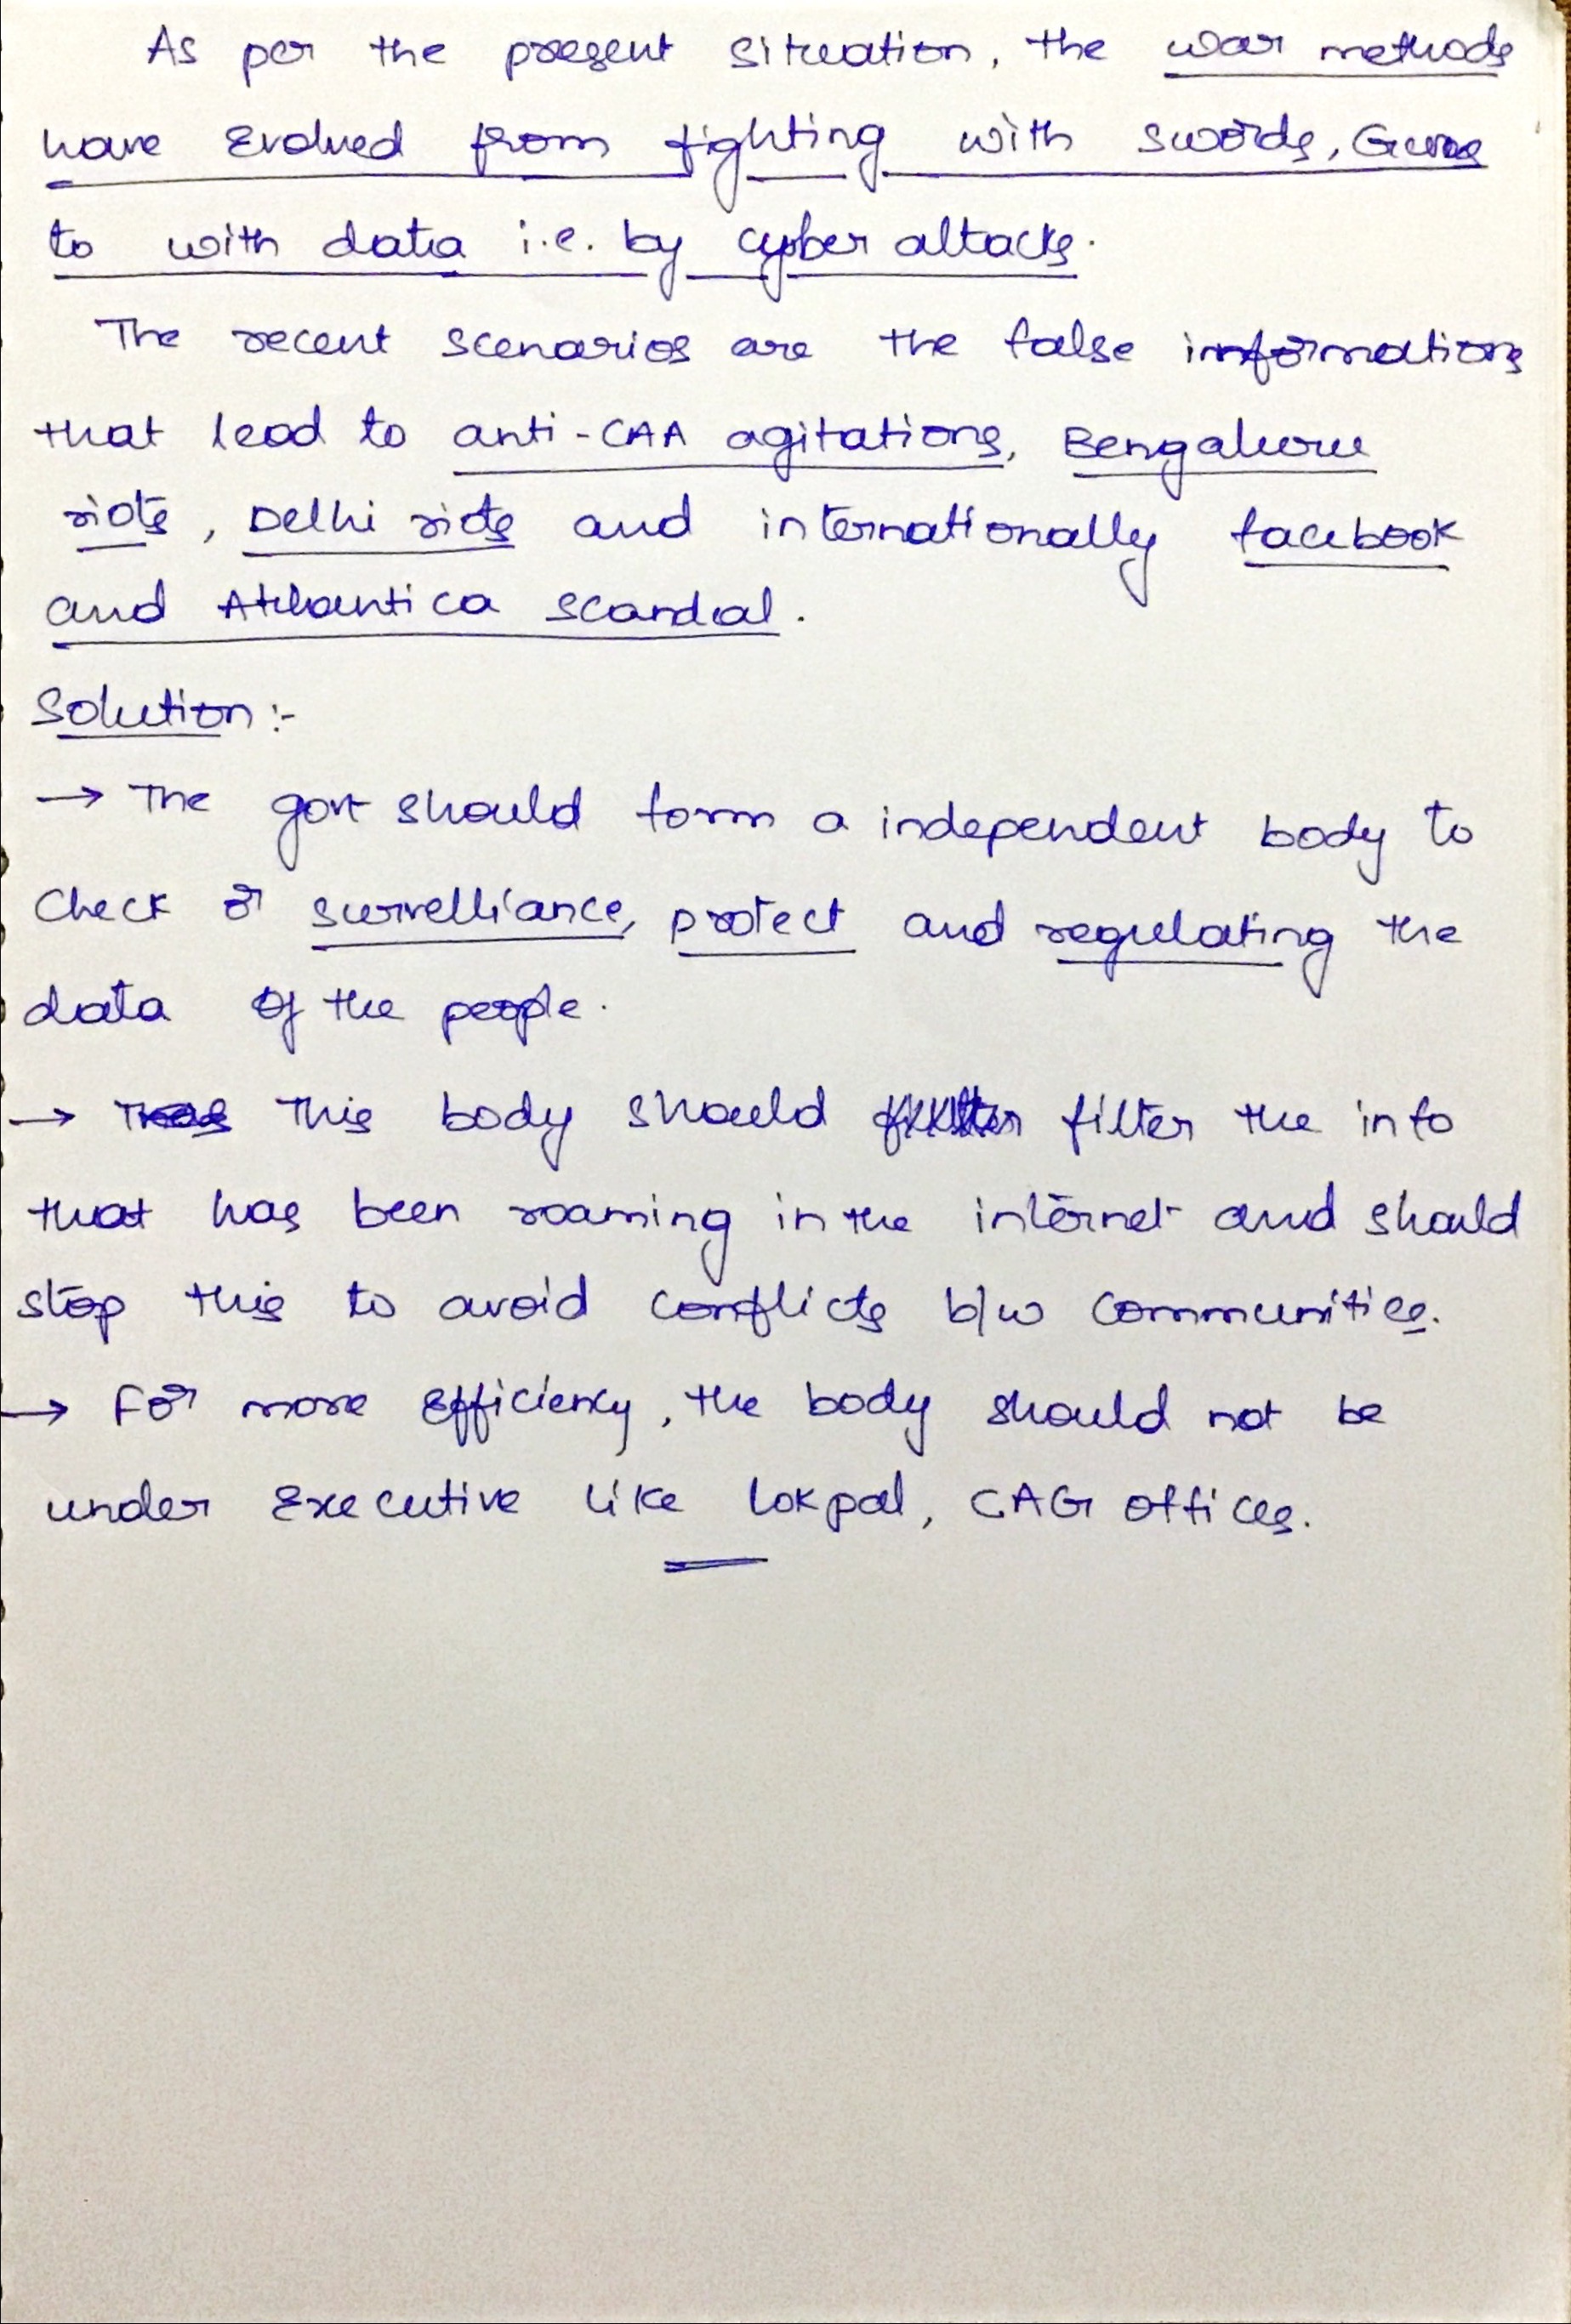 As per the present situation, the war methods
have Evolved from fighting with swords, Guns
to with data i.e. by cyber attacks.
The recent scenarios are the false informations
that lead to anti-CAA agitations, Bengaluru
riots, Delhi riots and internationally facebook
and Atlantica scandal.
Solution :-
→ The govt should form a independent body to
Check or survelliance, protect and regulating the
data of the people.
→ This body should filter the info
that has been roaming in the internet and should
stop this to avoid conflicts b/w Communities.
→ For more Efficiency, the body should not be
under Executive like lokpal, CAG offices.